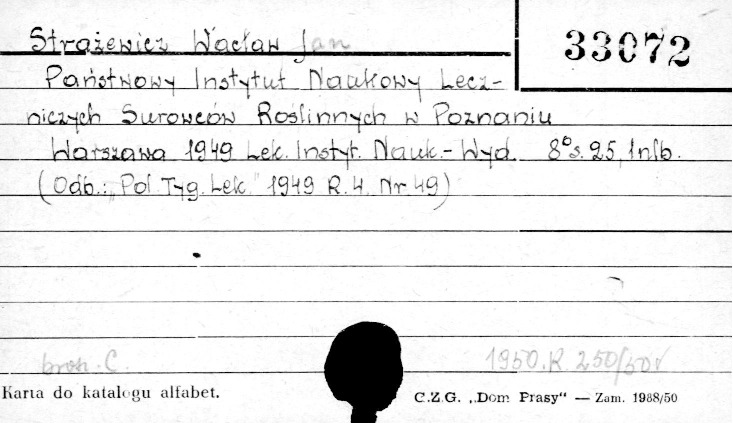 Strażewicz Wacław Jan
33072
Państwowy Instytut Naukowy Lecz-
niczych Surowców Roślinnych w Poznaniu
Warszawa 1949 Lek. Instyt. Nauk.-Wyd. 8° s. 25, 1 nlb.
(Odb.: „Pol. Tyg. Lek." 1949 R. 4. Nr 49)
brosz. C.
1950. R. 250/50
Karta do katalogu alfabet.
C.Z.G. „Dom Prasy“ — Zam. 1988/50